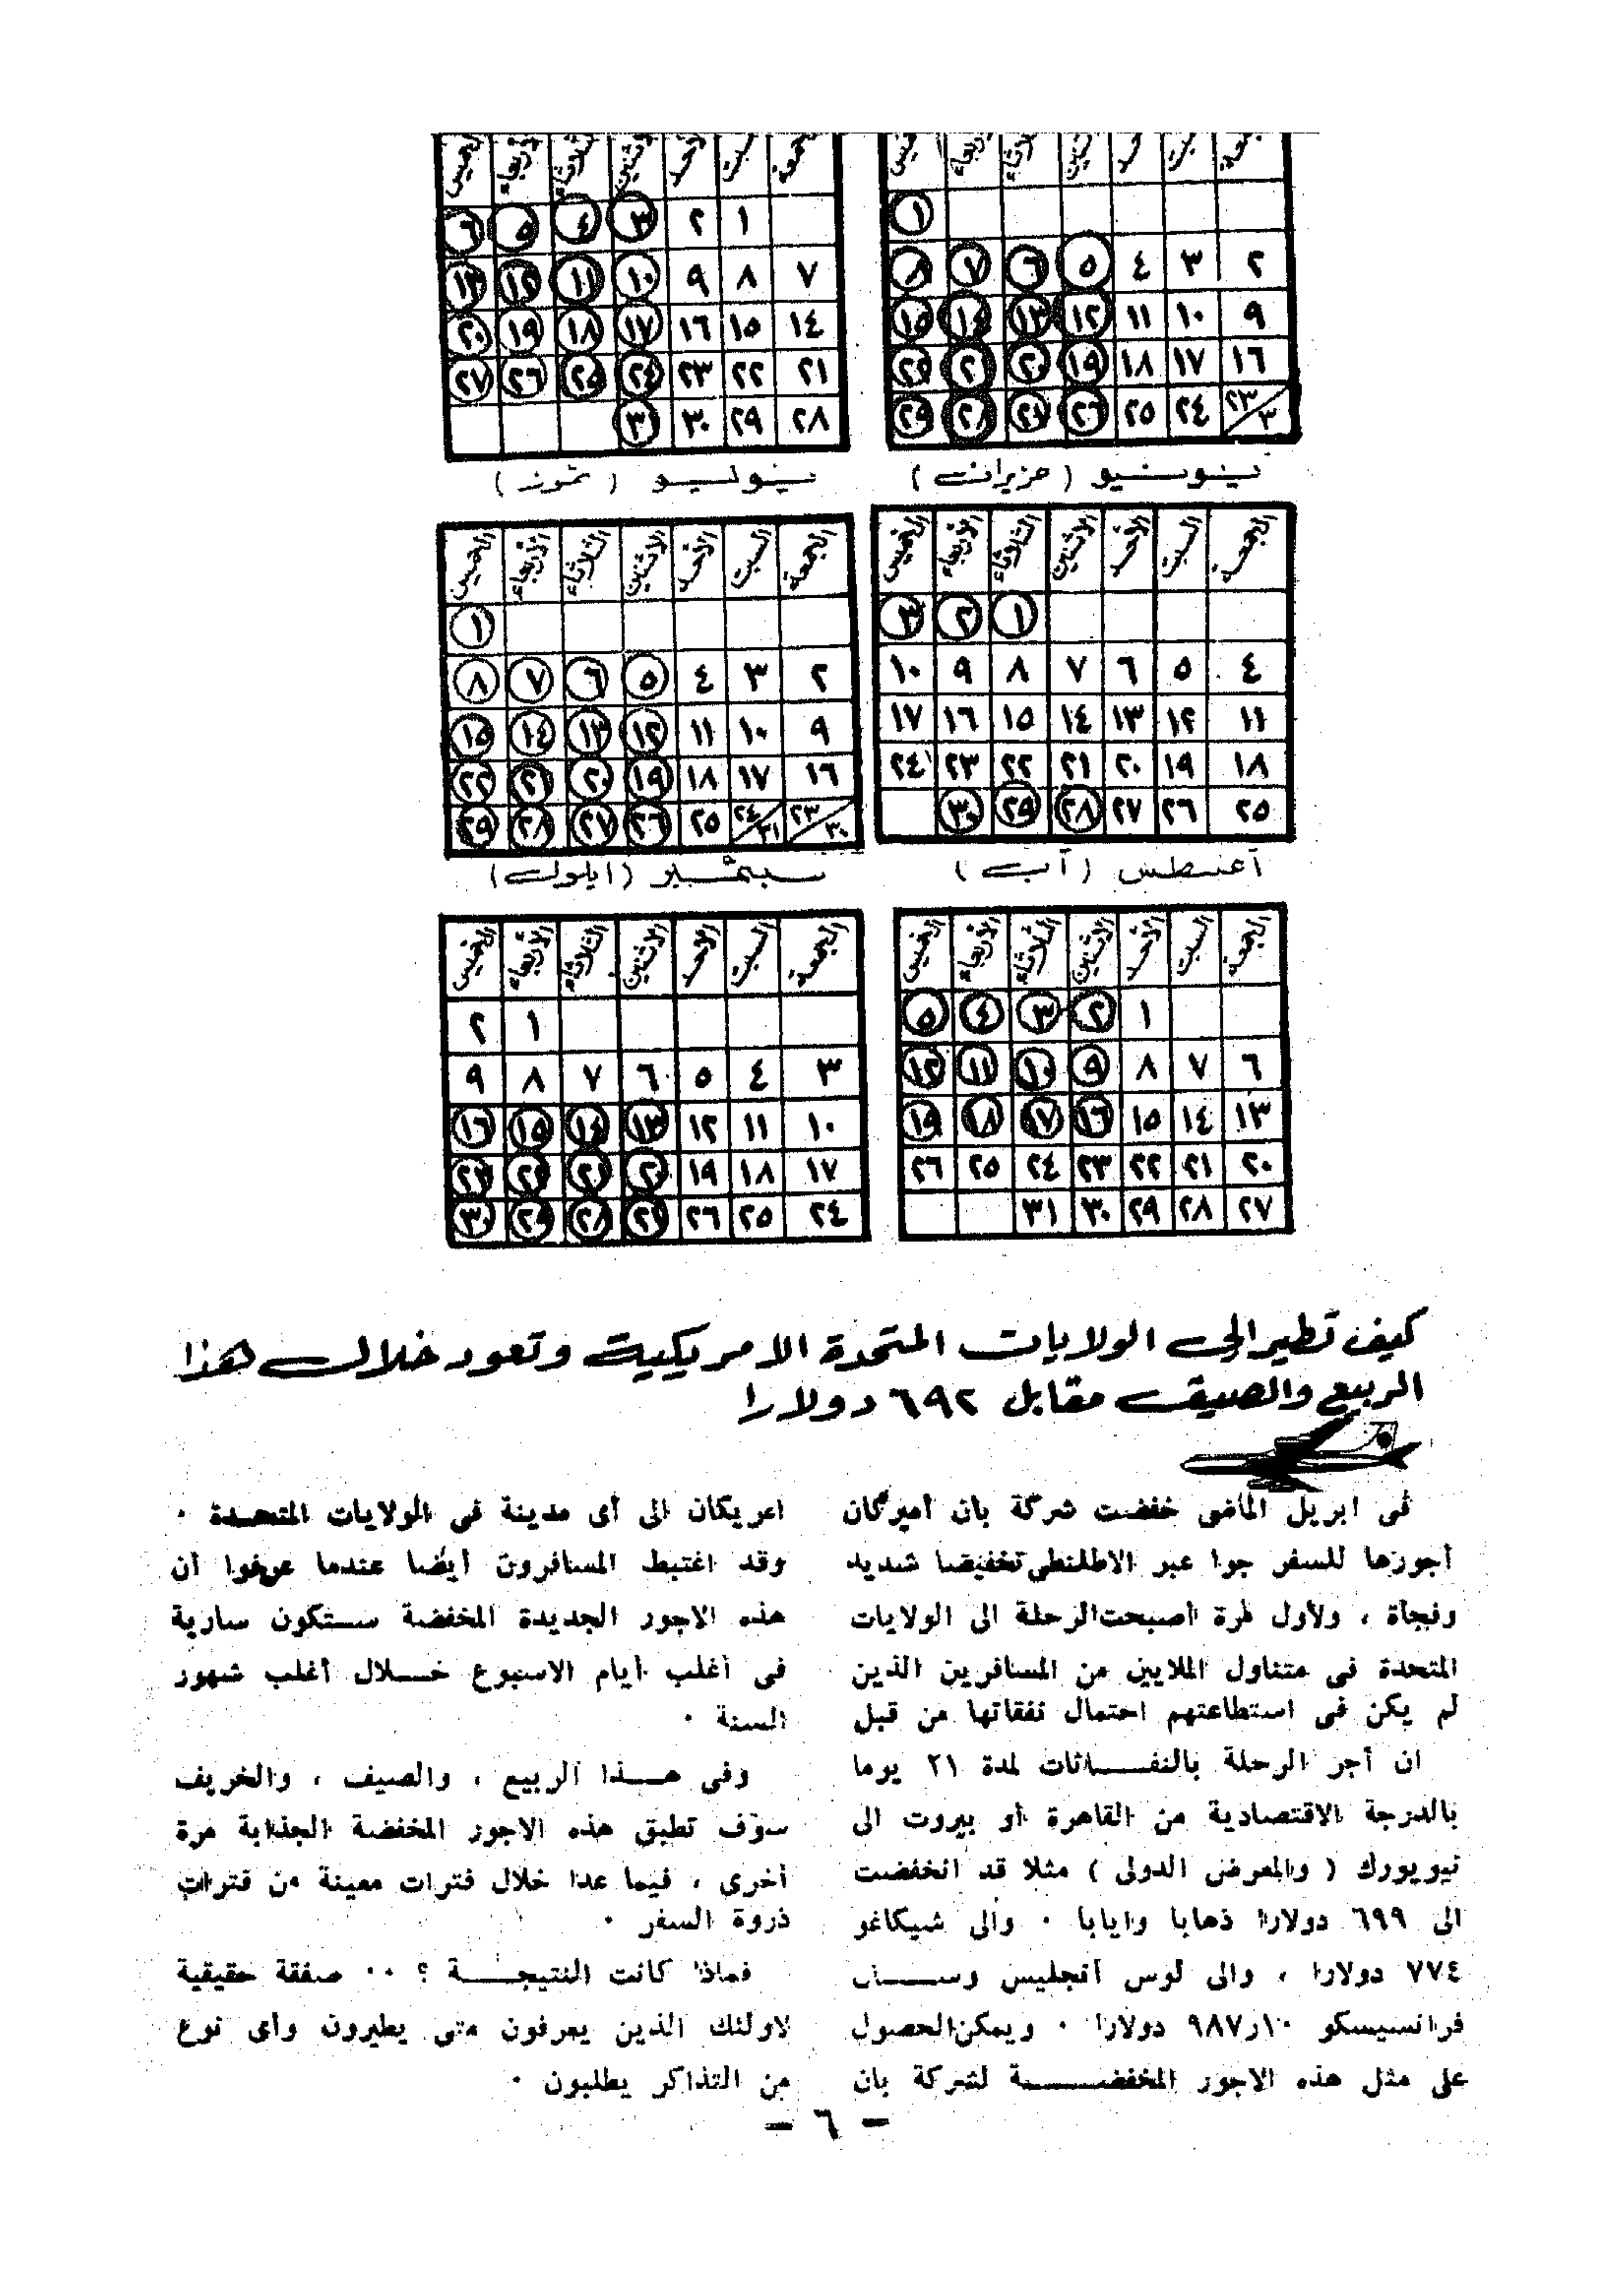 ١
٢ ٣ ٤ ٥ ٦ ٧ ٨
٩ ١٠ ١١ ١٢ ١٣ ١٤ ١٥
١٦ ١٧ ١٨ ١٩ ٢٠ ٢١ ٢٢
٢٣/٣٠ ٢٤ ٢٥ ٢٦ ٢٧ ٢٨ ٢٩
يونيو (حزيران)
١ ٢ ٣ ٤ ٥ ٦
٧ ٨ ٩ ١٠ ١١ ١٢ ١٣
١٤ ١٥ ١٦ ١٧ ١٨ ١٩ ٢٠
٢١ ٢٢ ٢٣ ٢٤ ٢٥ ٢٦ ٢٧
٢٨ ٢٩ ٣٠ ٣١
يوليو (تموز)
الجمعة السبت الأحد الاثنين الثلاثاء الأربعاء الخميس
١ ٢ ٣
٤ ٥ ٦ ٧ ٨ ٩ ١٠
١١ ١٢ ١٣ ١٤ ١٥ ١٦ ١٧
١٨ ١٩ ٢٠ ٢١ ٢٢ ٢٣ ٢٤
٢٥ ٢٦ ٢٧ ٢٨ ٢٩ ٣٠
أغسطس (آب)
الجمعة السبت الأحد الاثنين الثلاثاء الأربعاء الخميس
١
٢ ٣ ٤ ٥ ٦ ٧ ٨
٩ ١٠ ١١ ١٢ ١٣ ١٤ ١٥
١٦ ١٧ ١٨ ١٩ ٢٠ ٢١ ٢٢
٢٣/٣٠ ٢٤/٣١ ٢٥ ٢٦ ٢٧ ٢٨ ٢٩
سبتمبر (ايلول)
الجمعة السبت الأحد الاثنين الثلاثاء الأربعاء الخميس
١ ٢ ٣ ٤ ٥
٦ ٧ ٨ ٩ ١٠ ١١ ١٢
١٣ ١٤ ١٥ ١٦ ١٧ ١٨ ١٩
٢٠ ٢١ ٢٢ ٢٣ ٢٤ ٢٥ ٢٦
٢٧ ٢٨ ٢٩ ٣٠ ٣١
الجمعة السبت الأحد الاثنين الثلاثاء الأربعاء الخميس
١ ٢
٣ ٤ ٥ ٦ ٧ ٨ ٩
١٠ ١١ ١٢ ١٣ ١٤ ١٥ ١٦
١٧ ١٨ ١٩ ٢٠ ٢١ ٢٢ ٢٣
٢٤ ٢٥ ٢٦ ٢٧ ٢٨ ٢٩ ٣٠
كيف تطير الى الولايات المتحدة الامريكية وتعود خلال هذا
الربيع والصيف مقابل ٦٩٢ دولارا
فى ابريل الماضى خفضت شركة بان أميركان
أجورها للسفر جوا عبر الاطلنطى تخفيضا شديد
وفجأة ، ولأول مرة أصبحت الرحلة الى الولايات
المتحدة فى متناول الملايين من المسافرين الذين
لم يكن فى استطاعتهم احتمال نفقاتها من قبل
ان أجر الرحلة بالنفـاثات لمدة ٢١ يوما
بالدرجة الاقتصادية من القاهرة أو بيروت الى
نيويورك ( والمعرض الدولى ) مثلا قد انخفضت
الى ٦٩٩ دولارا ذهابا وايابا ٠ والى شيكاغو
٧٧٤ دولارا ، والى لوس أنجليس وسـان
فرانسيسكو ٩٨٧ر١٠ دولارا ٠ ويمكن الحصول
على مثل هذه الاجور المخفضـة لشركة بان
امريكان الى أى مدينة فى الولايات المتحـدة ٠
وقد اغتبط المسافرون أيضا عندما عرفوا أن
هذه الاجور الجديدة المخفضة سـتكون سارية
فى أغلب أيام الاسبوع خـلال أغلب شهور
السنة ٠
وفى هـذا الربيع ، والصيف ، والخريف
سوف تطبق هذه الاجور المخفضة الجذابة مرة
أخرى ، فيما عدا خلال فترات معينة من فترات
ذروة السفر ٠
فماذا كانت النتيجـة ؟ ٠٠ صفقة حقيقية
لاولئك الذين يعرفون متى يطيرون وأى نوع
من التذاكر يطلبون ٠
- ٦ -